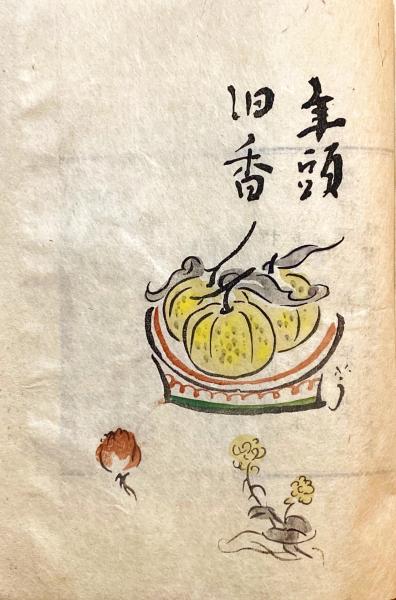 年頭
旧香